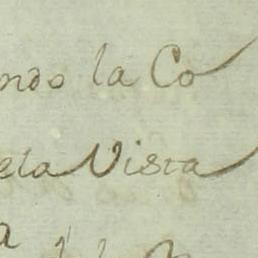 ndo la Co
eta Vista
a